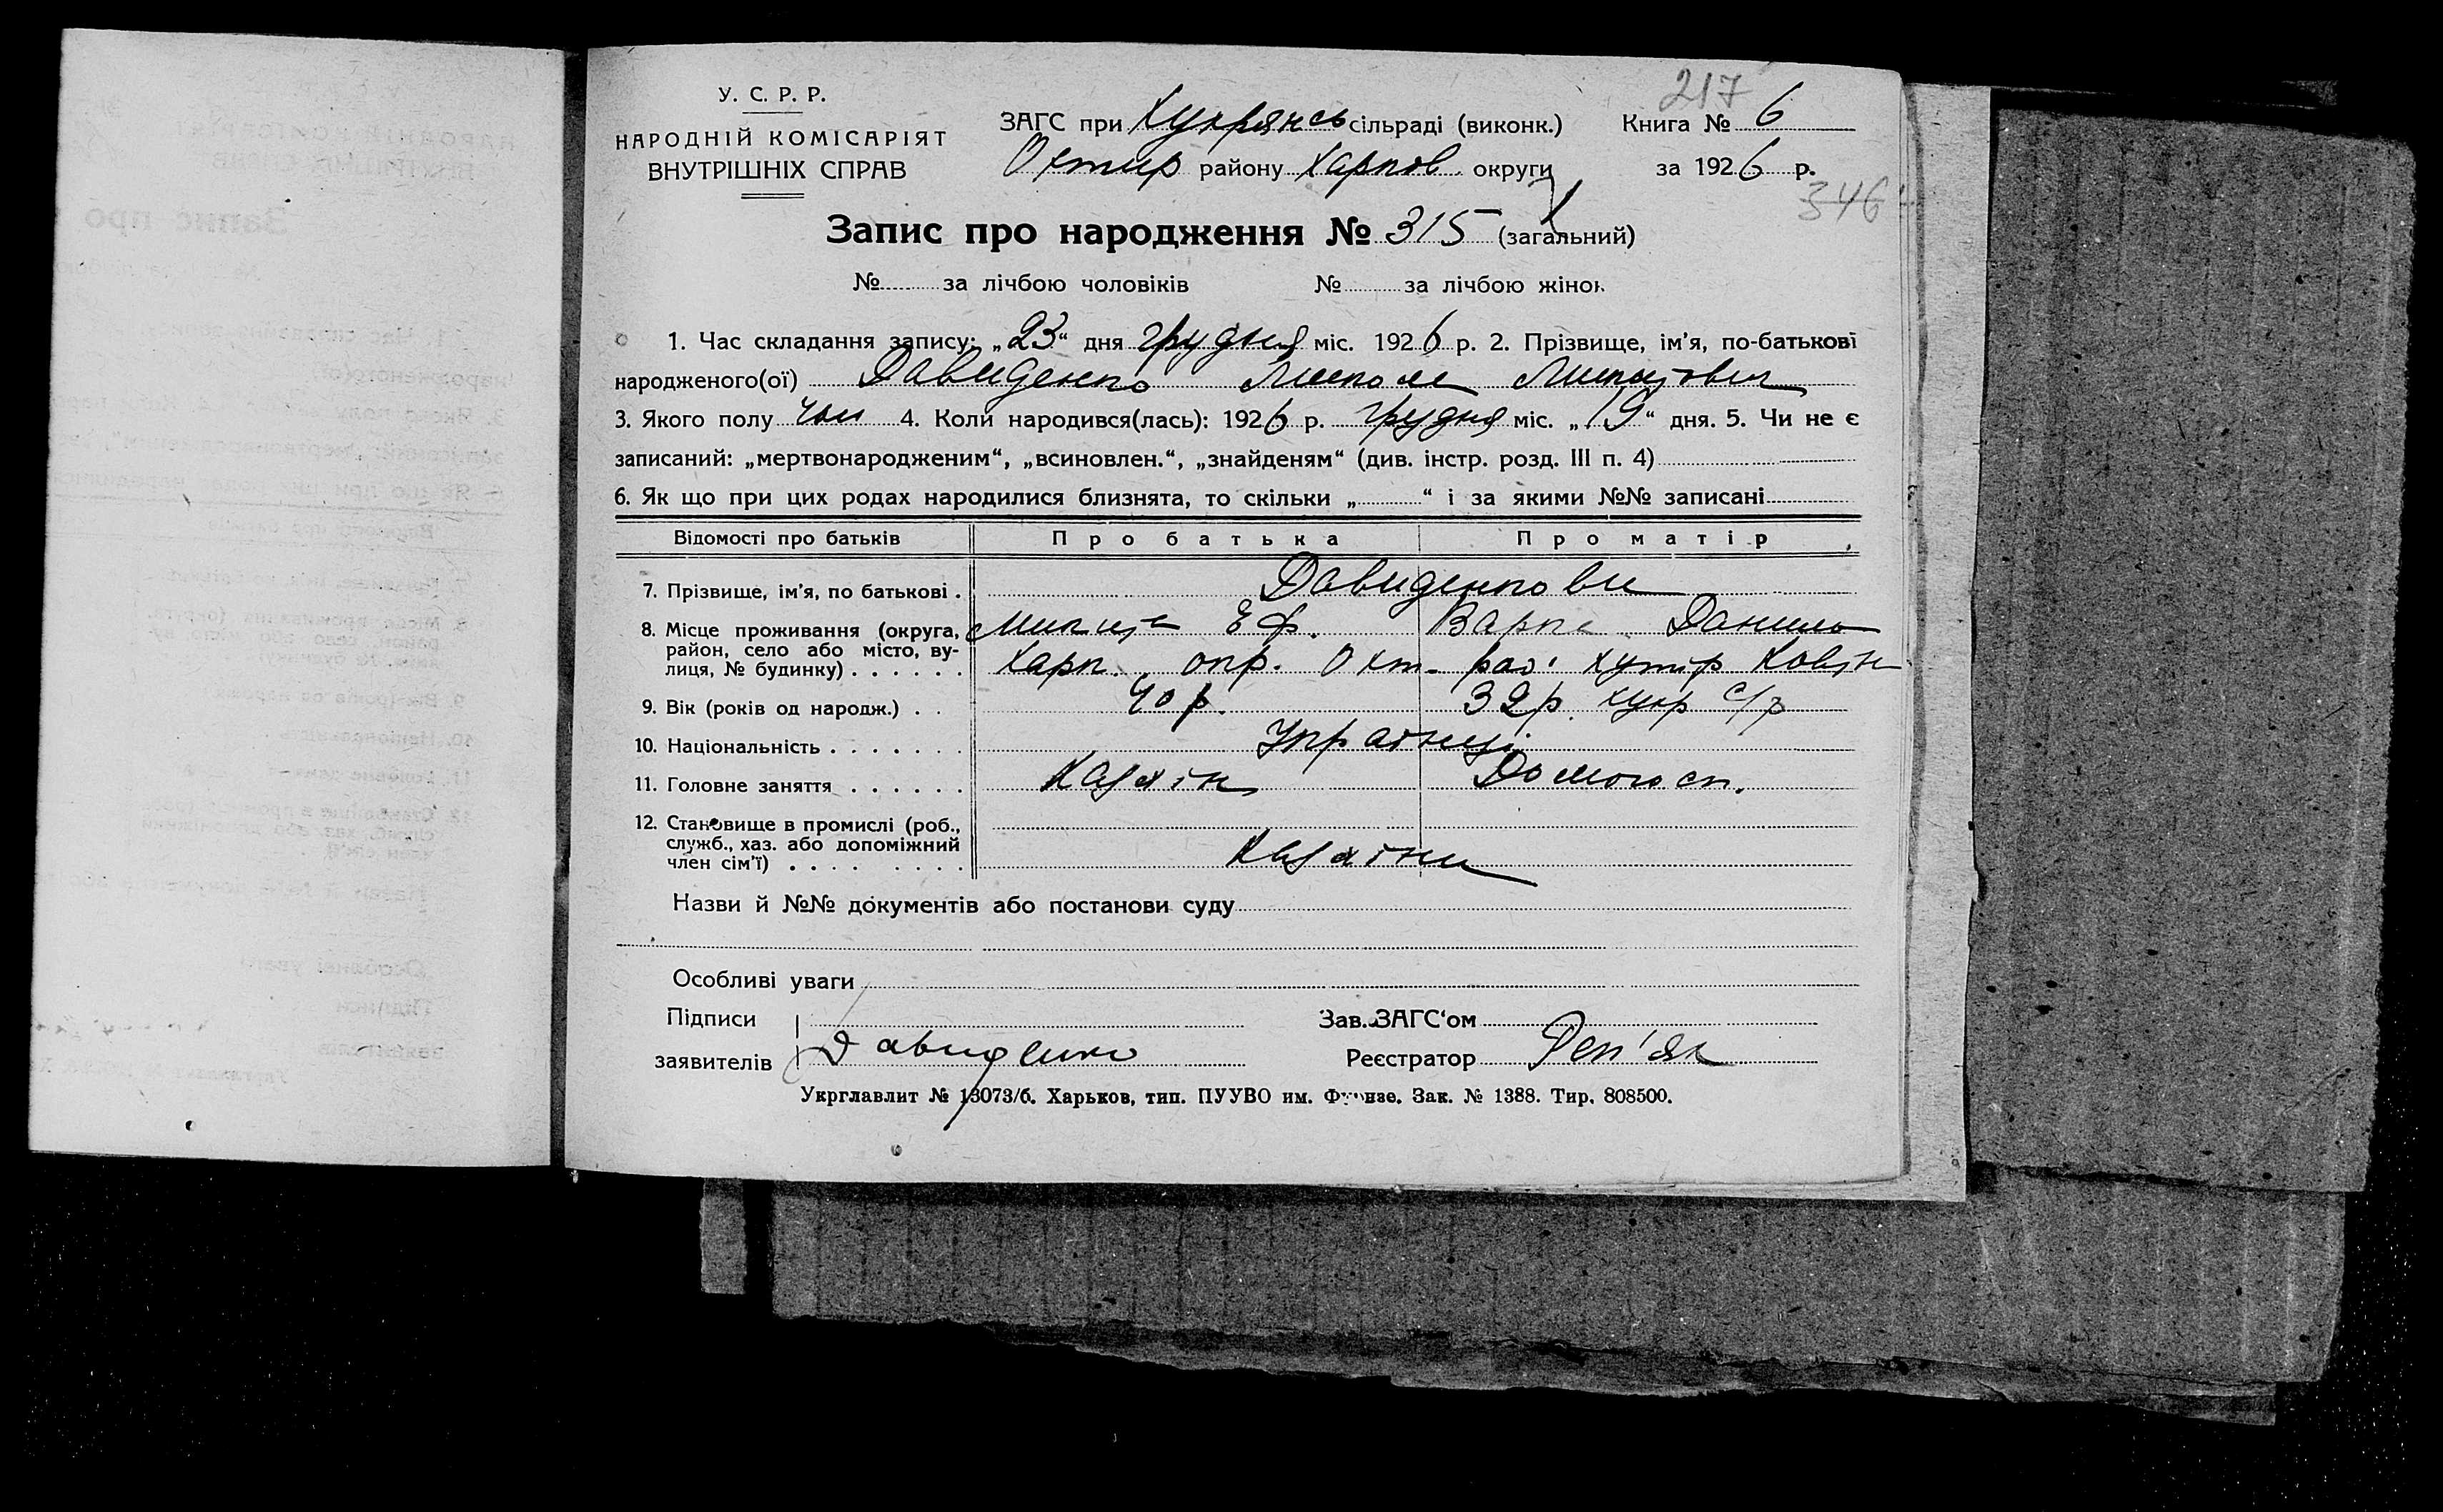 217
У. С. Р. Р.
НАРОДНІЙ КОМІСАРІЯТ
ВНУТРІШНІХ СПРАВ
ЗАГС при Хухрянсь сільраді (виконк.)
Охтир району Харков округи
Книга № 6
за 1926 р.
346
Запис про народження № 315 (загальний)
№ за лічбою чоловіків № за лічбою жінок
1. Час складання запису: „23“ дня грудня міс. 1926 р. 2. Прізвище, ім'я, по-батькові
народженого(ої) Давиденко Микола Микитович
3. Якого полу чол 4. Коли народився(лась): 1926 р. грудня міс. „19“ дня. 5. Чи не є
записаний: „мертвонародженим“, „всиновлен.“, „знайденям“ (див. інстр. розд. III п. 4)
6. Як що при цих родах народилися близнята, то скільки „ “ і за якими №№ записані
Відомості про батьків Про батька Про матір
7. Прізвище, ім'я, по батькові . Давиденкови
Микита Еф. Варка Данило
8. Місце проживання (округа,
район, село або місто, ву-
лиця, № будинку) . . . . . . Харк. окр. Охт. рай. хутір
9. Вік (років од народж.) . . 40 р. 32 р. хухр с/р
10. Національність . . . . . . . Українці
11. Головне заняття . . . . . . Хазяїн Домогосп.
12. Становище в промислі (роб.,
служб., хаз. або допоміжний
член сім'ї) . . . . . . . . Хазяїни
Назви й №№ документів або постанови суду
Особливі уваги
Підписи Зав. ЗАГС'ом
заявителів Давиденко Реєстратор Реп'ях
Укрглавлит № 13073/б. Харьков, тип. ПУУВО им. Фрунзе. Зак. № 1388. Тир. 808500.